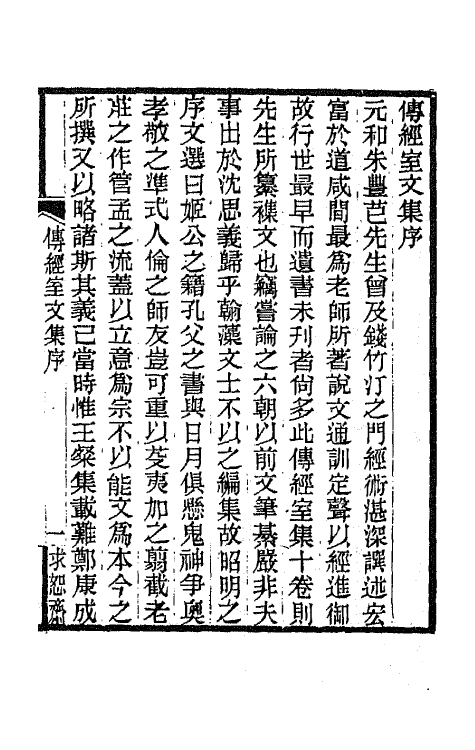 傳經室文集序
元和朱豐芑先生曾及錢竹汀之門經術湛深譔述宏
富於道咸間最爲老師所著說文通訓定聲以經進御
故行世最早而遺書未刊者尙多此傳經室集十卷則
先生所纂襍文也竊嘗論之六朝以前文筆綦嚴非夫
事出於沈思義歸乎翰藻文士不以之編集故昭明之
序文選曰姬公之籍孔父之書與日月俱懸鬼神爭奧
孝敬之準式人倫之師友豈可重以芟夷加之翦截老
莊之作管孟之流蓋以立意爲宗不以能文爲本今之
所撰又以略諸斯其義已當時惟王粲集載難鄭康成
傳經室文集序
一
求恕齋